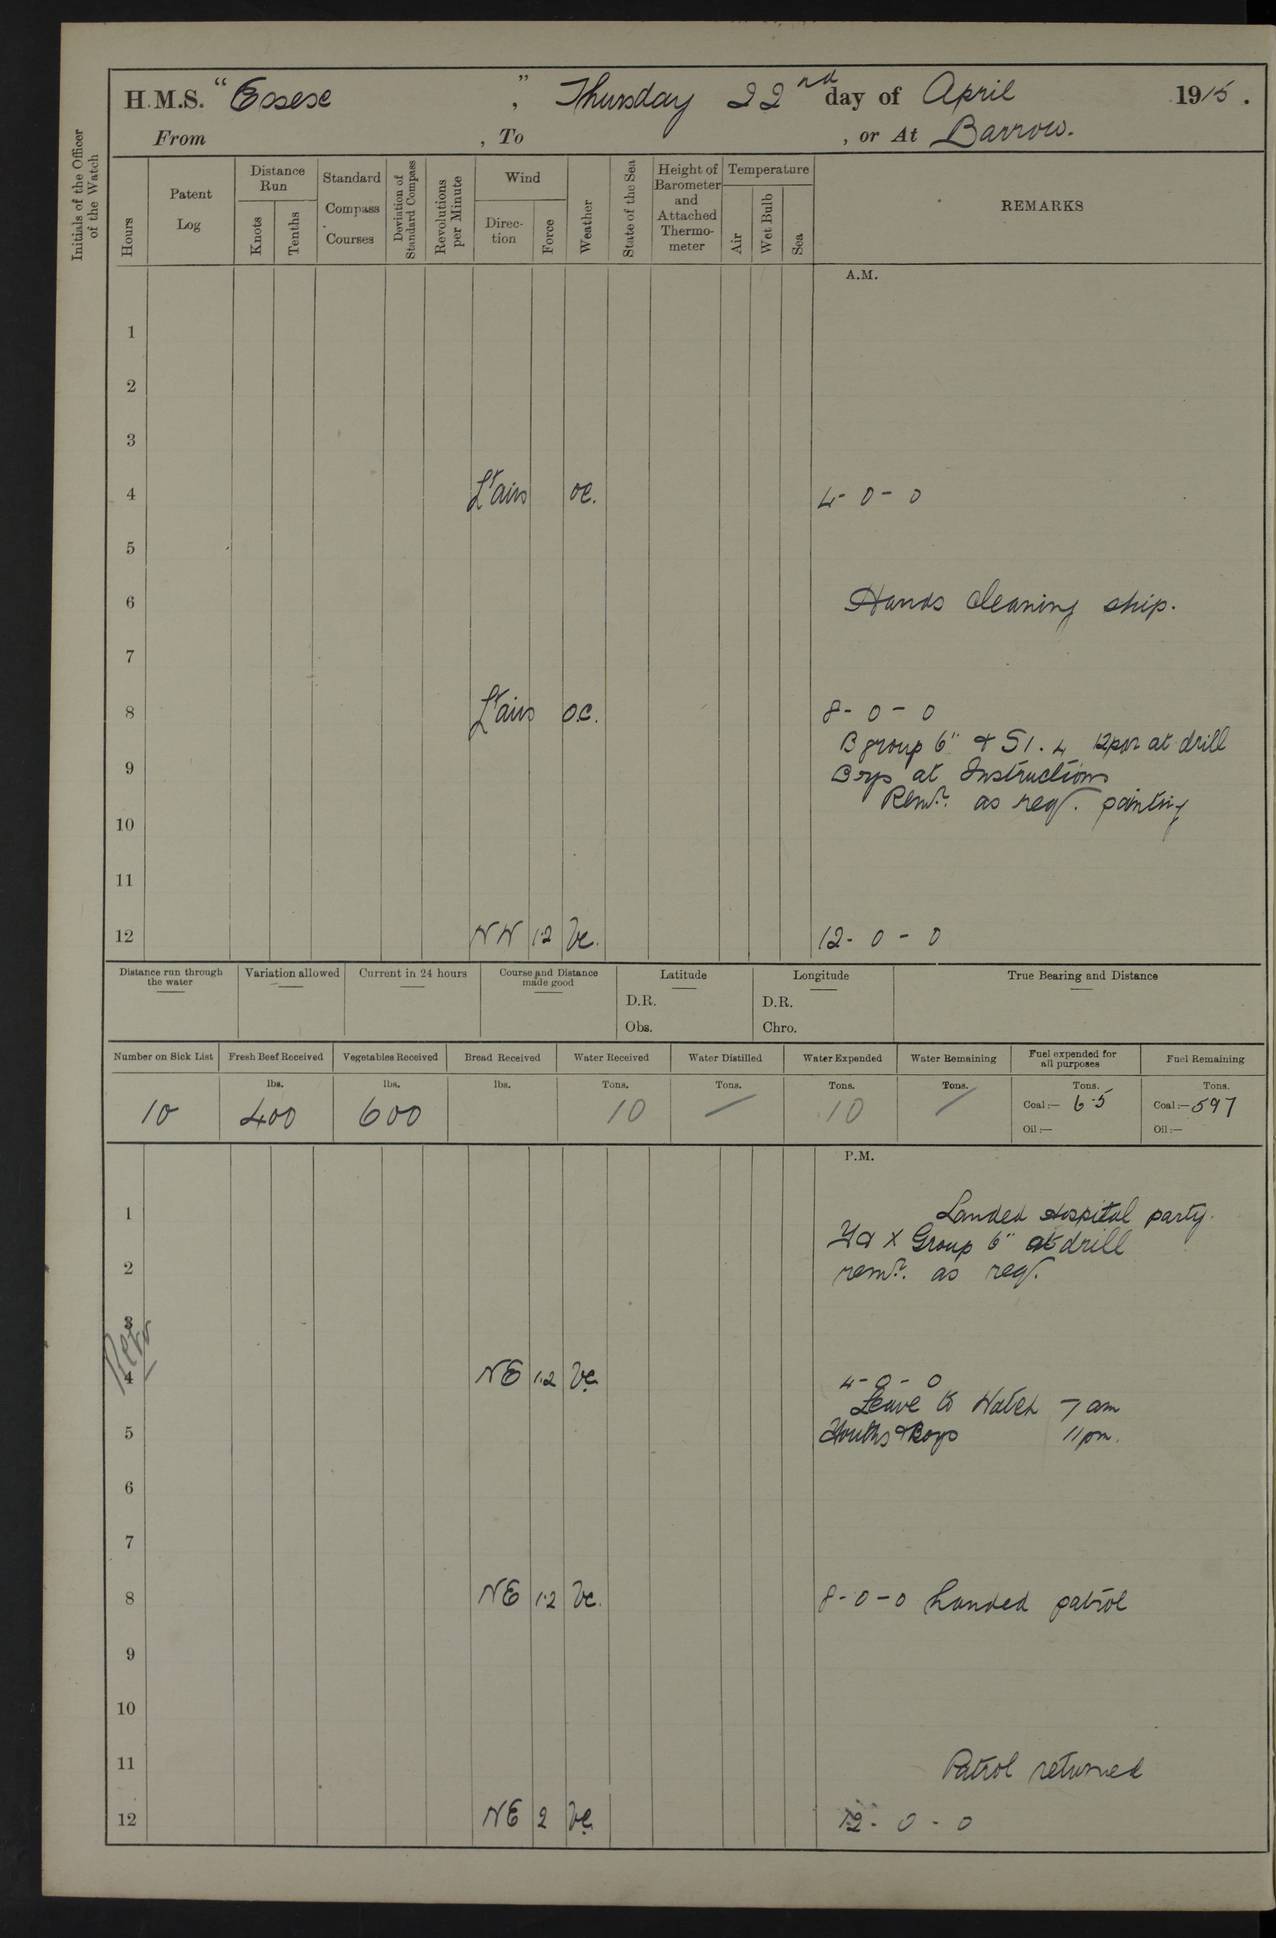 H.M.S. "Essex", Thursday 22nd day of April 1915.
From , To , or At Barrow.
Initials of the Officer of the Watch
Hours
Patent Log
Distance Run
Knots
Tenths
Standard Compass Courses
Deviation of Standard Compass
Revolutions per Minute
Wind
Direction
Force
Weather
State of the Sea
Height of Barometer and Attached Thermometer
Temperature
Air
Wet Bulb
Sea
REMARKS
A.M.
1
2
3
4 Lt airs oc. 4-0-0
5
6 Hands cleaning ship.
7
8 Lt airs o.c. 8-0-0
B group 6" & S1. 4 12pdr at drill
9 Boys at Instructions
Remr. as req. painting
10
11
12 NW 1.2 bc. 12-0-0
Distance run through the water
Variation allowed
Current in 24 hours
Course and Distance made good
Latitude
D.R.
Obs.
Longitude
D.R.
Chro.
True Bearing and Distance
Number on Sick List Fresh Beef Received Vegetables Received Bread Received Water Received Water Distilled Water Expended Water Remaining Fuel expended for all purposes Fuel Remaining
lbs. lbs. lbs. Tons. Tons. Tons. Tons. Tons. Tons.
10 400 600 10 — 10 — Coal:— 6.5 Coal:— 597
Oil:— Oil:—
P.M.
1 Landed Hospital party.
X Group 6" at drill
2 remr. as req.
3
4 NE 1.2 bc. 4-0-0
Leave to Watch 7am
5 Youths & Boys 11pm.
6
7
8 NE 1.2 bc. 8-0-0 Landed patrol
9
10
11 Patrol returned
12 NE 2 bc. 12-0-0